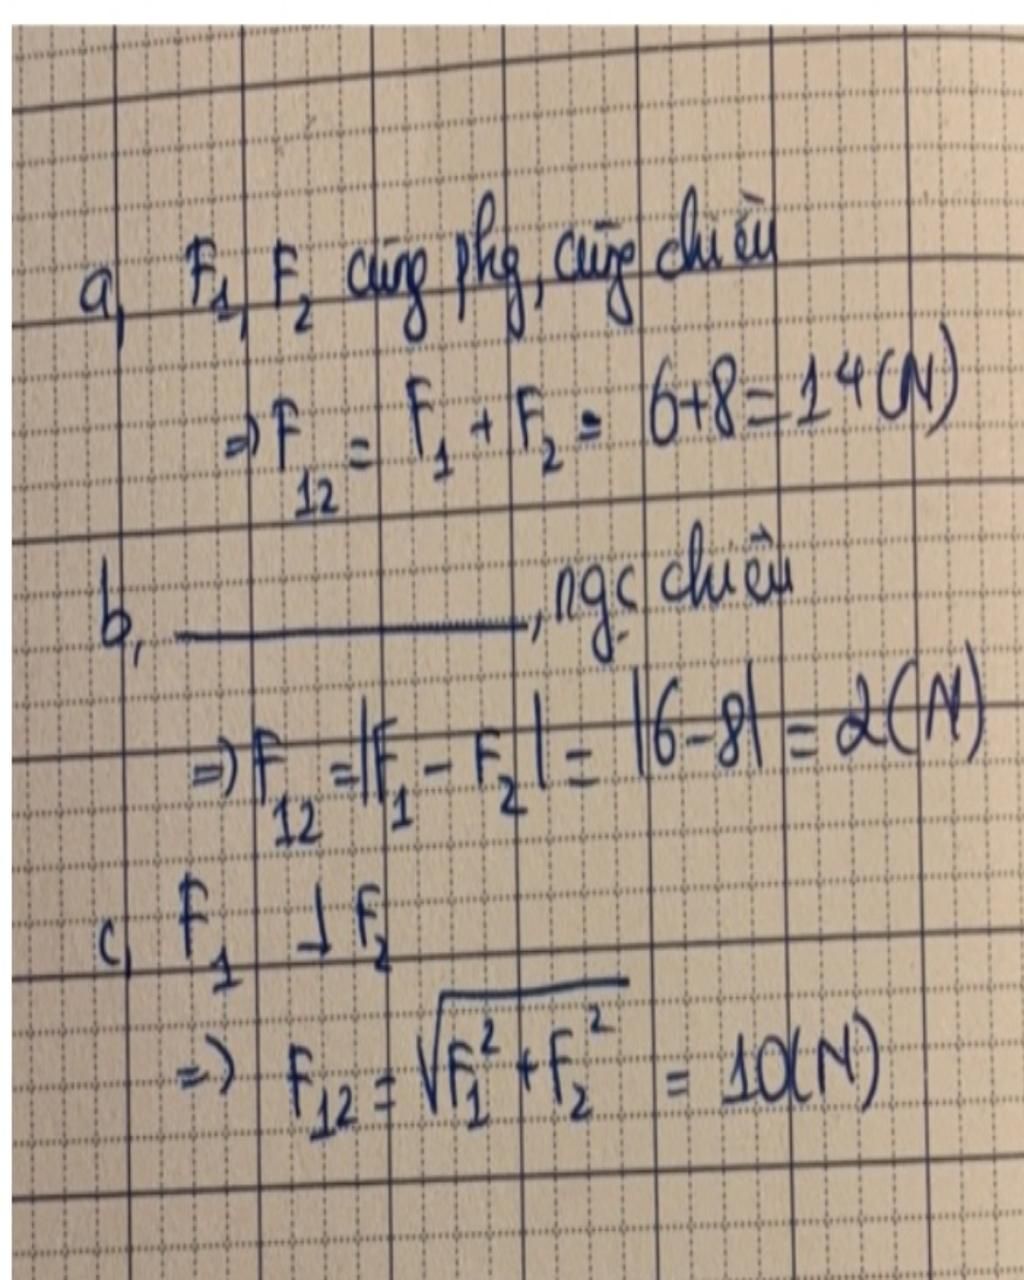 a, F₁, F₂ cùng phg, cùng chiều
=> F₁₂ = F₁ + F₂ = 6+8 = 14 (N)
b, ————————, ngc chiều
=> F₁₂ = |F₁ - F₂| = |6-8| = 2 (N)
c, F₁ ⊥ F₂
=> F₁₂ = √F₁² + F₂² = 10(N)